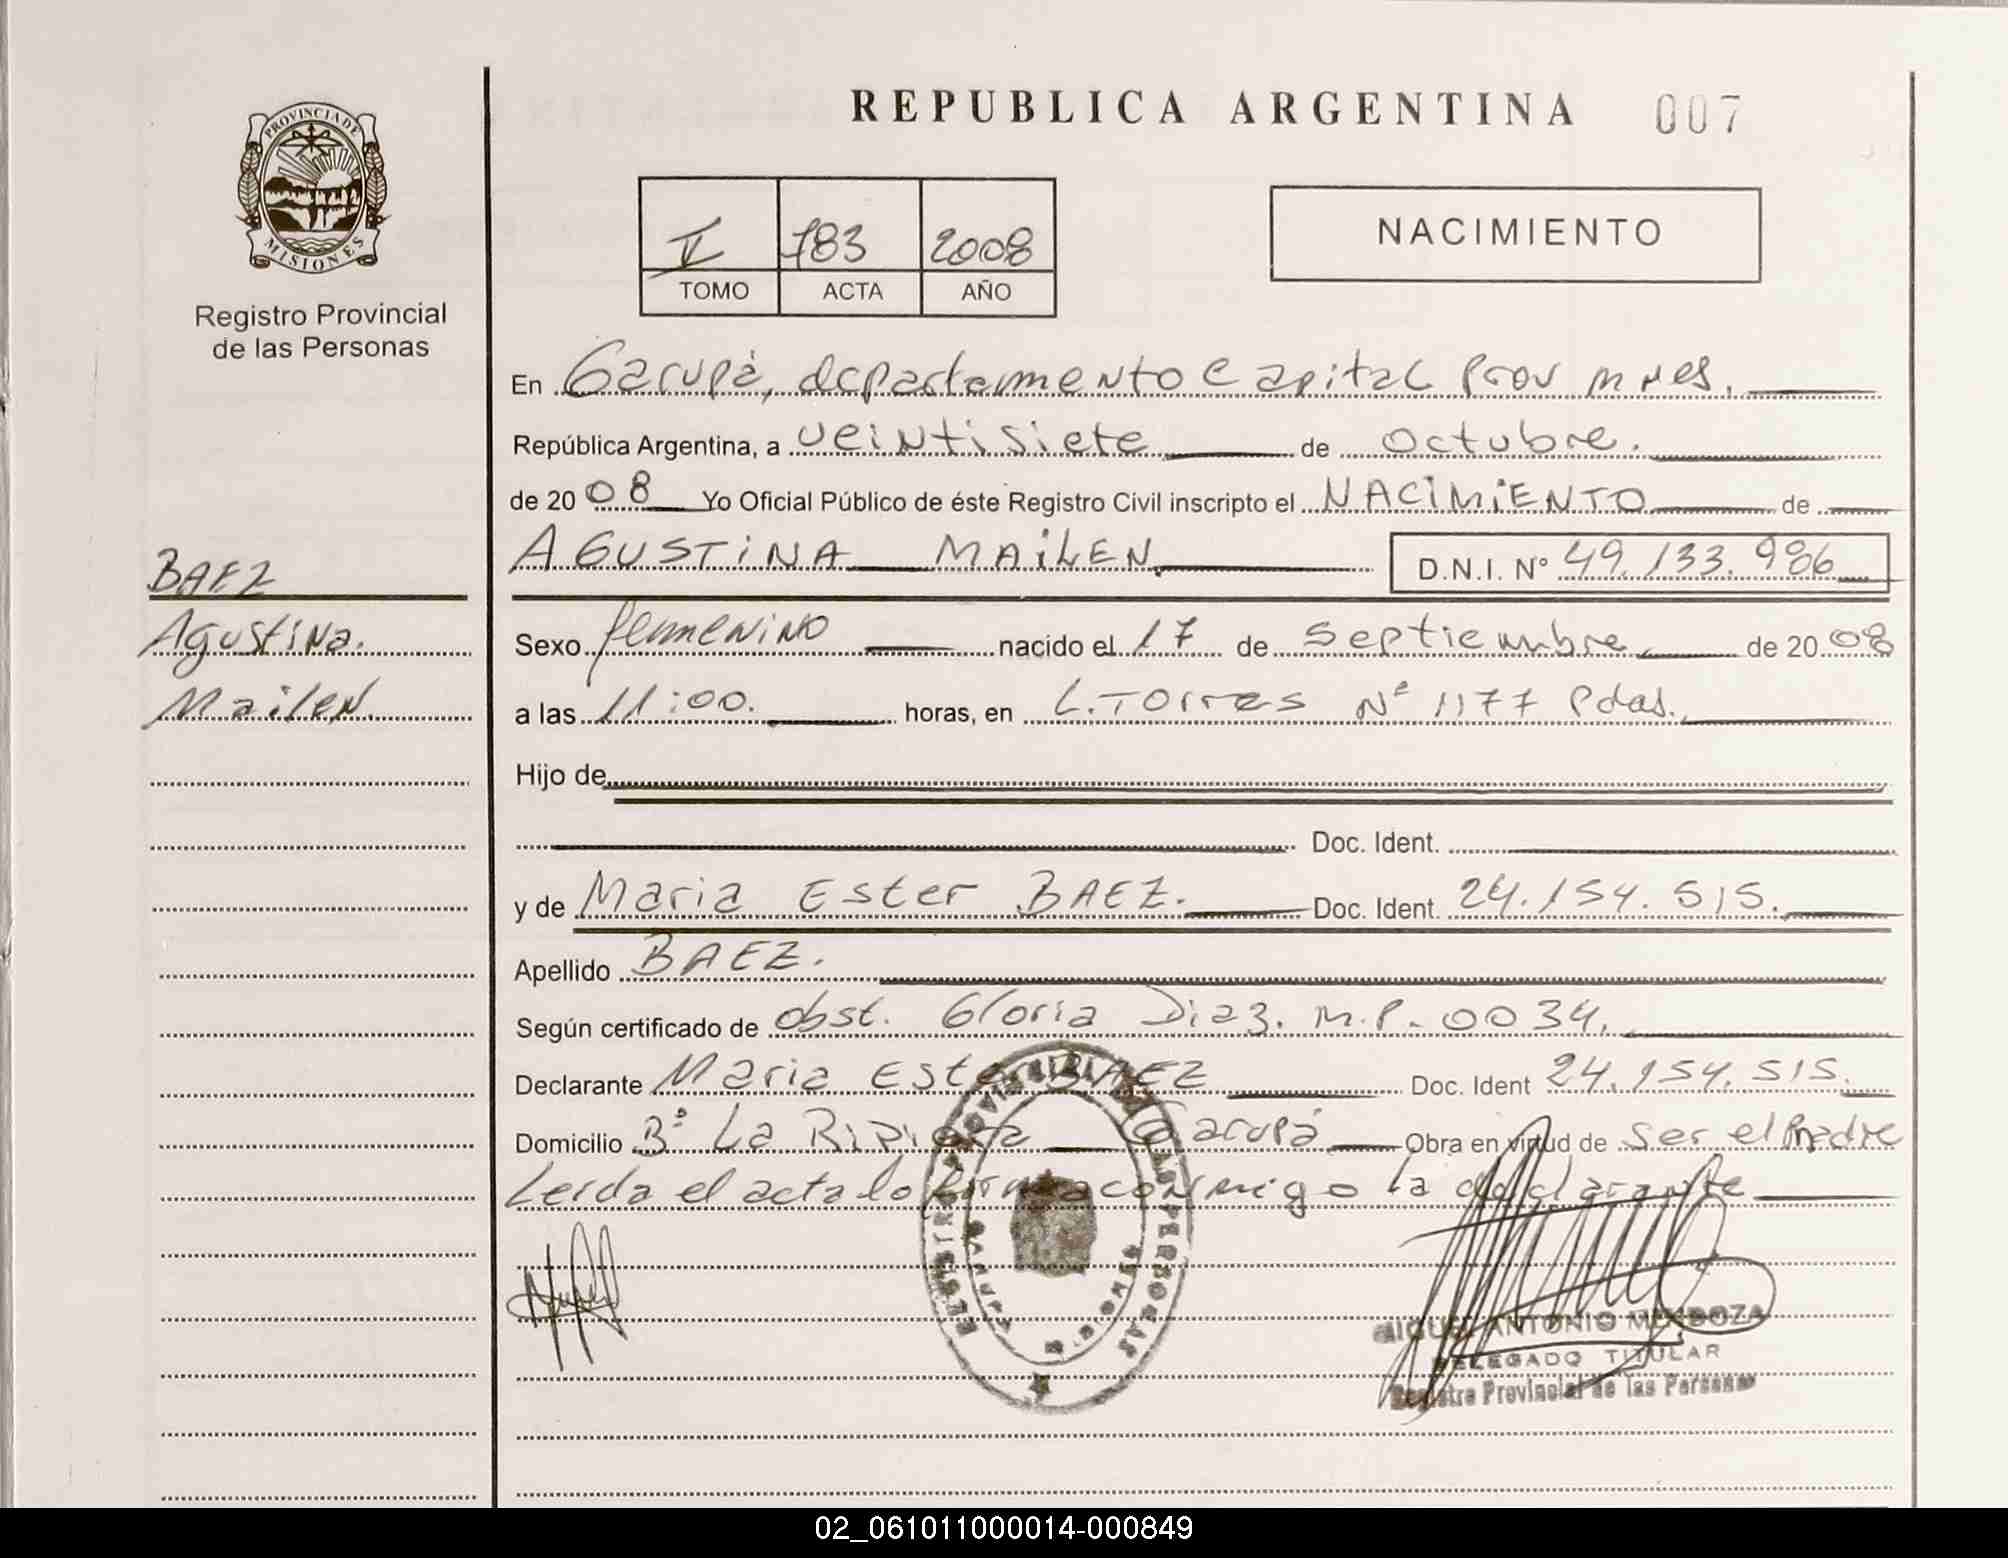 REPUBLICA ARGENTINA 007
PROVINCIA DE
MISIONES
Registro Provincial
de las Personas
V 783 2008
TOMO ACTA AÑO
NACIMIENTO
En Garupá, departamento Capital Prov mnes.
República Argentina, a veintisiete de octubre.
de 2008 Yo Oficial Público de éste Registro Civil inscripto el NACIMIENTO de
AGUSTINA MAILEN. D.N.I. N° 49.133.986
BAEZ
Agustina.
Mailen.
Sexo femenino nacido el 17 de septiembre de 2008
a las 11:00. horas, en L. Torres N° 1177 Pdas.
Hijo de
Doc. Ident.
y de Maria Ester BAEZ. Doc. Ident. 24.154.515.
Apellido BAEZ.
Según certificado de obst. Gloria Diaz. M.P. 0034.
Declarante Maria Ester BAEZ Doc. Ident 24.154.515.
Domicilio B° La Ripiera Garupá Obra en virtud de ser el Madre
Leida el acta lo firma conmigo la declarante
REGISTRO PROVINCIAL DE LAS PERSONAS
GARUPA
MIGUEL ANTONIO MENDOZA
DELEGADO TITULAR
Registro Provincial de las Personas
02_061011000014-000849